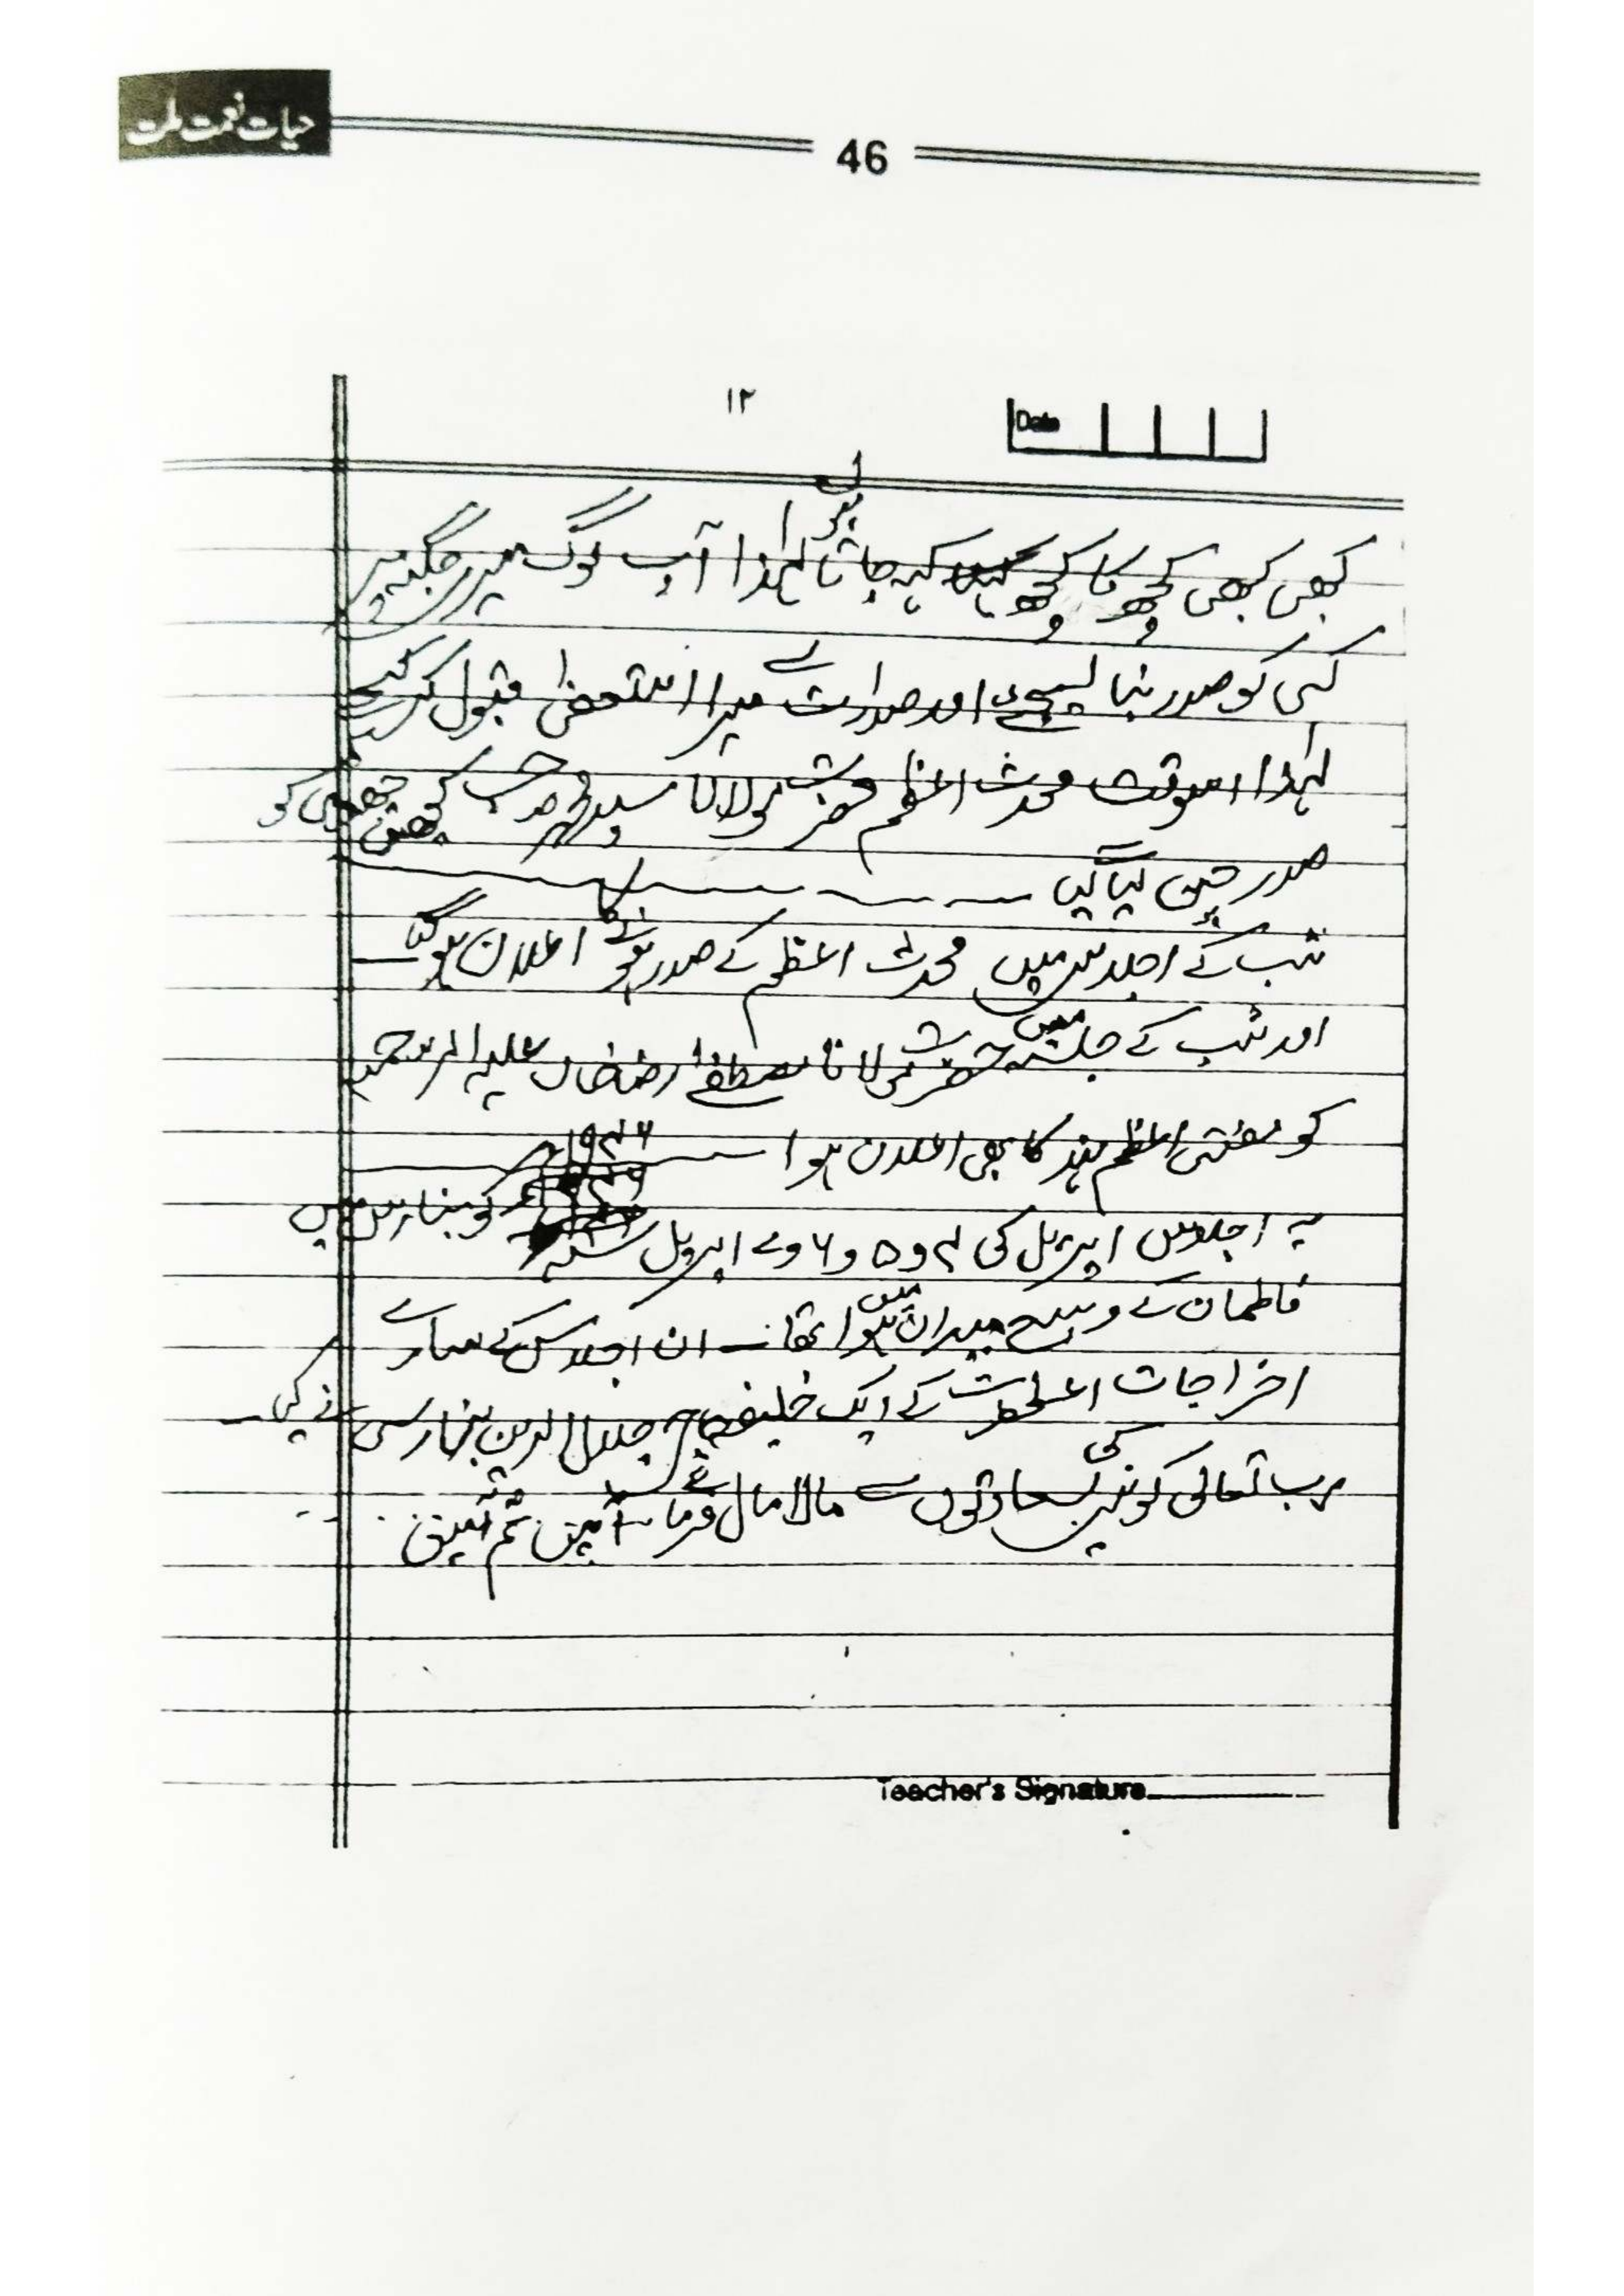 حیات نعمت ملت
46
۱۲
Date
کبھی کبھی کچھ کا کچھ کہہ جاتا ہوں لہذا آپ لوگ میری جگہ پر
کسی کو صدر بنا لیجئے اور صدارت سے میرا استعفیٰ قبول کر لیجئے
لہذا اسوقت محدث اعظم حضرت مولانا سید محمد صاحب کچھوچھوی کو
صدر چن لیا گیا
شب کے اجلاس میں محدث اعظم کے صدر ہونے کا اعلان ہو گیا
اور شب کے جلسہ میں حضرت مولانا مصطفےٰ رضا خاں علیہ الرحمہ
کو مفتی اعظم ہند کا بھی اعلان ہوا
یہ اجلاس اپریل کی ۴ و ۵ و ۶ و ۷ اپریل ۱۹۴۶ کو بنارس میں
فاطمان کے وسیع میدان میں ہوا تھا ان اجلاس کے سارے
اخراجات اعلحضرت کے ایک خلیفہ حاجی جلال الدین بنارسی نے کی
رب تعالی کونین کی سعادتوں سے مالا مال فرمائے آمین ثم آمین
Teacher's Signature